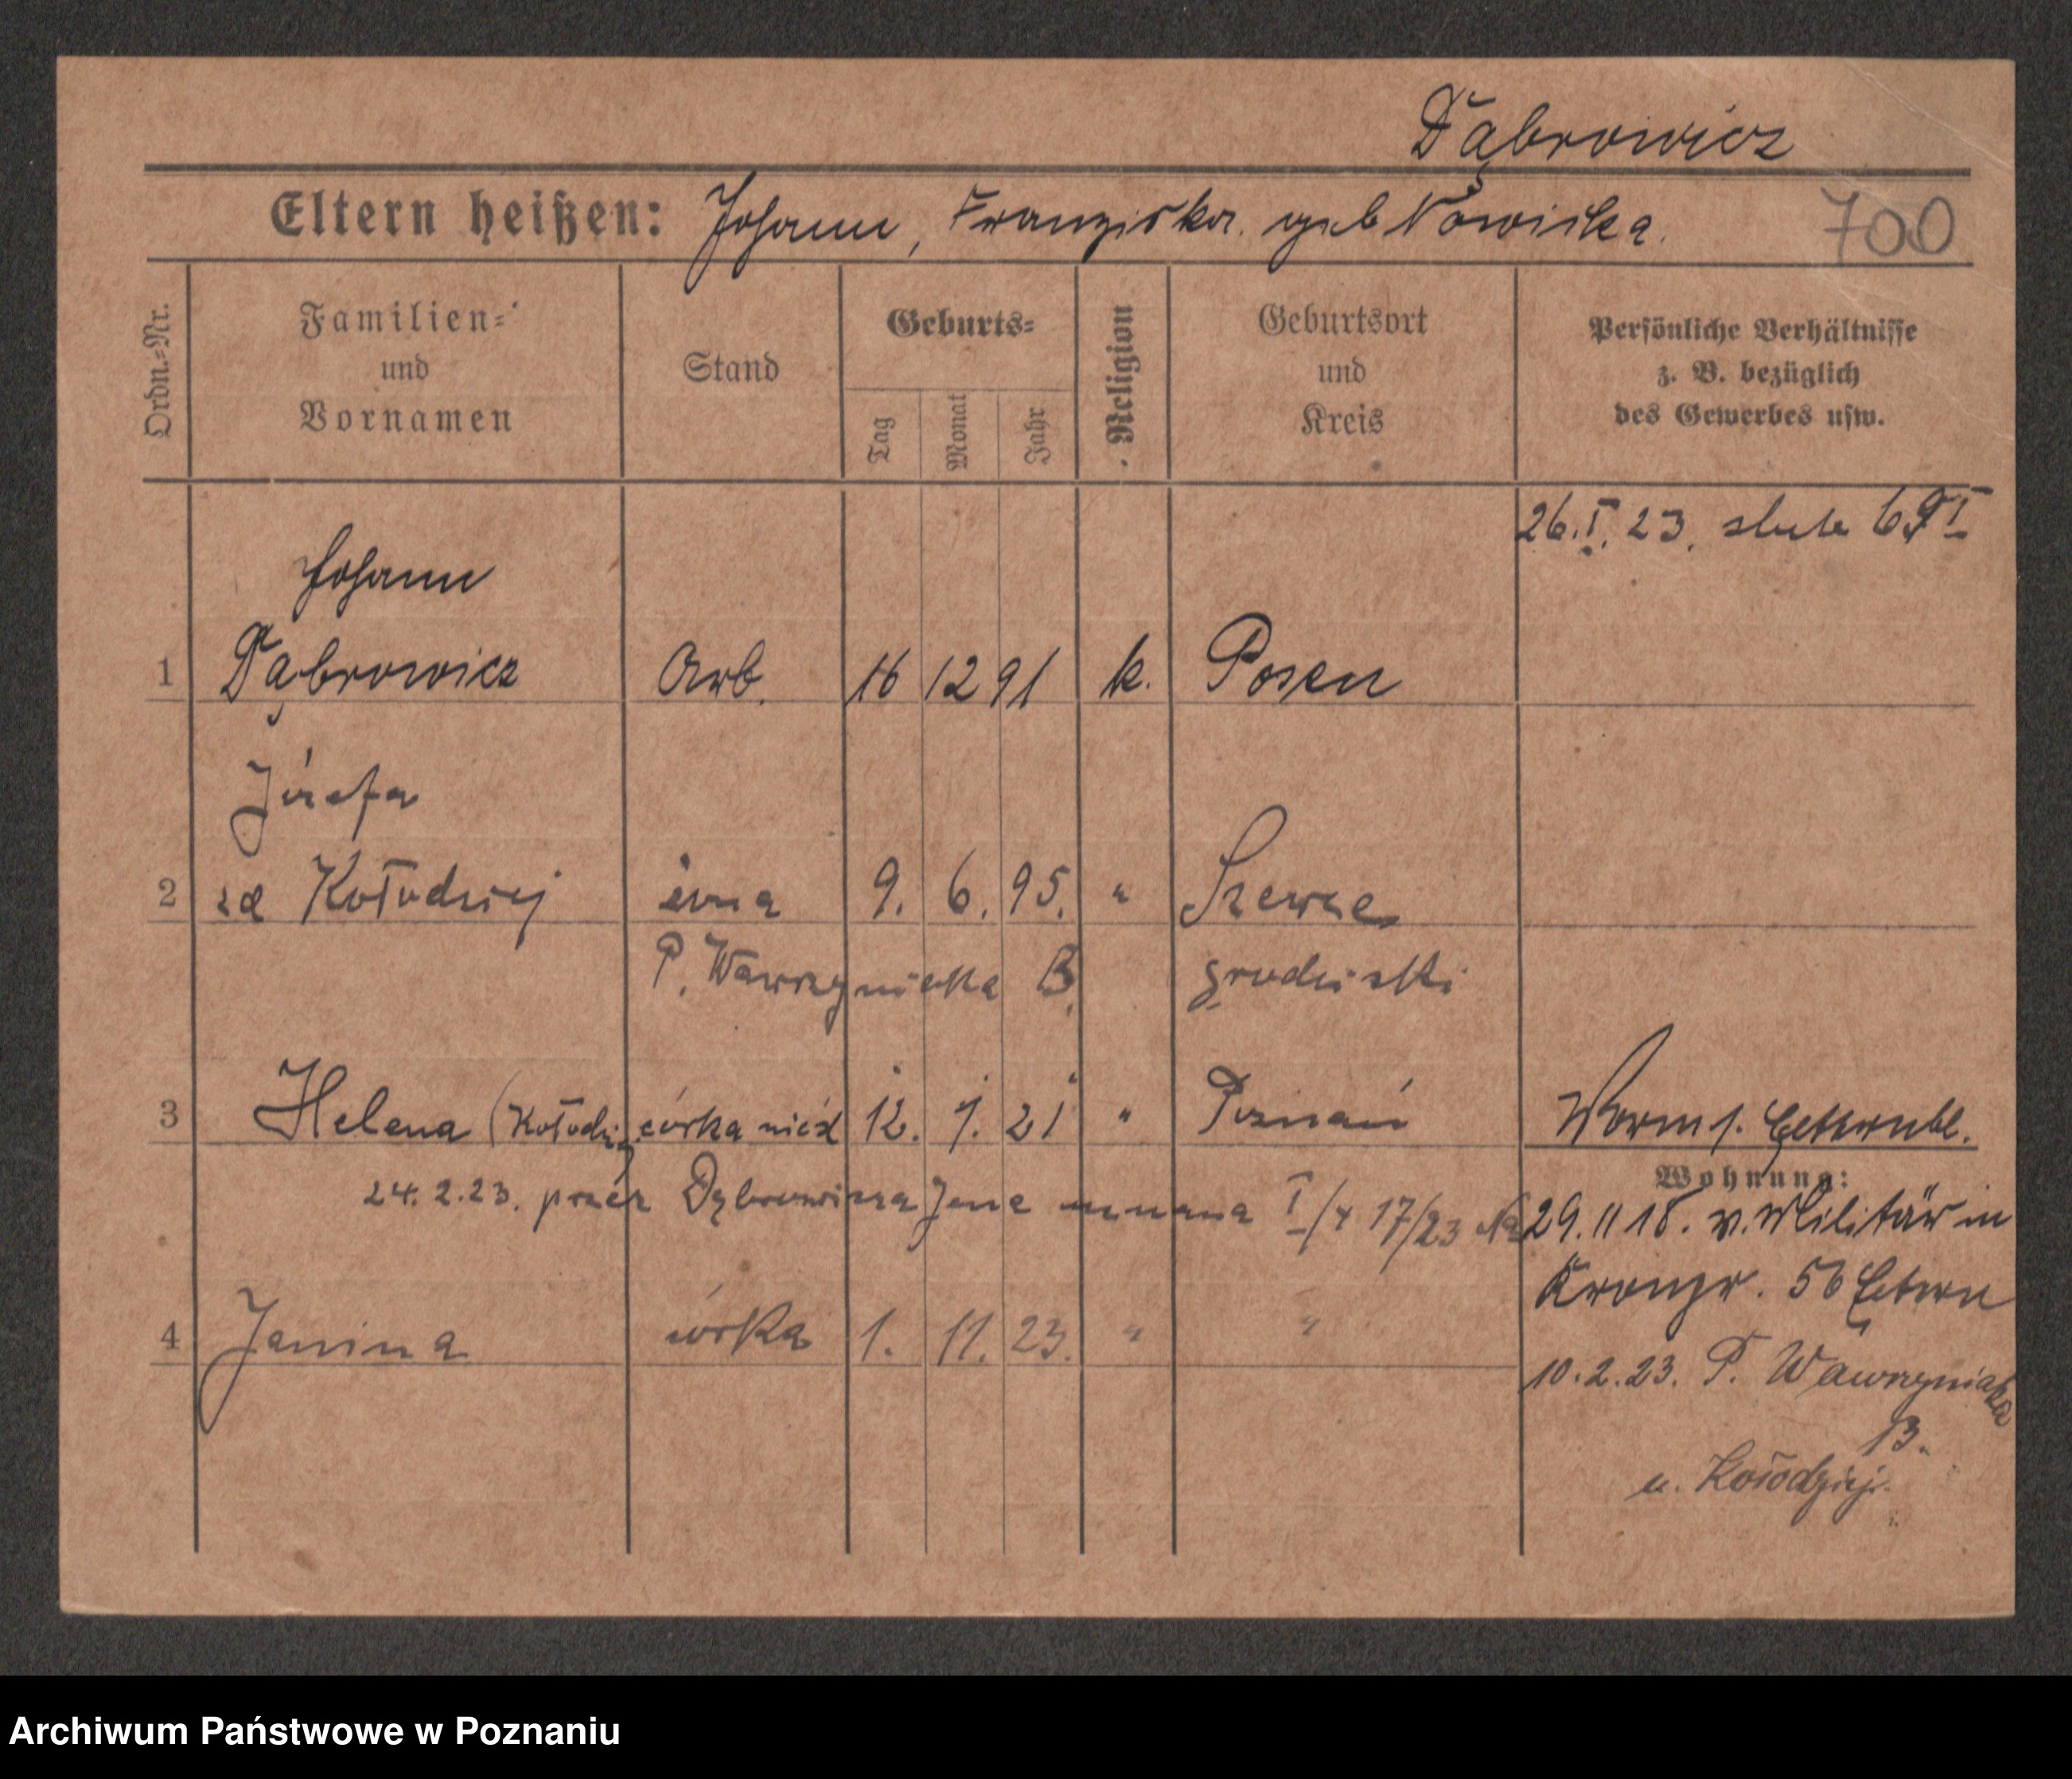 Dąbrowicz
Eltern heißen: Johann, Franziska geb Nowicka. 700
Ordn.-Nr.
Familien-
und
Vornamen
Stand
Geburts-
Tag
Monat
Jahr
Religion
Geburtsort
und
Kreis
Persönliche Verhältnisse
z. B. bezüglich
des Gewerbes usw.
26.I.23.
Johann
1 Dąbrowicz Arb. 16 12 91 k. Posen
Józefa
2 zd Kołodziej żona 9. 6. 95. " Szewce
P. Wawrzyniaka B. grodziski
3 Helena (Kołodziej córka 12. 1. 21 " Poznań
24.2.23. przez Dąbrowicza Jana uznana I/4 17/23
4 Janina córka 1. 11. 23. " "
Wohnung:
29.11 18. v. Militär in
Kronpr. 56 Eltern
10.2.23. P. Wawrzyniaka
13.
u. Kołodziej.
Archiwum Państwowe w Poznaniu